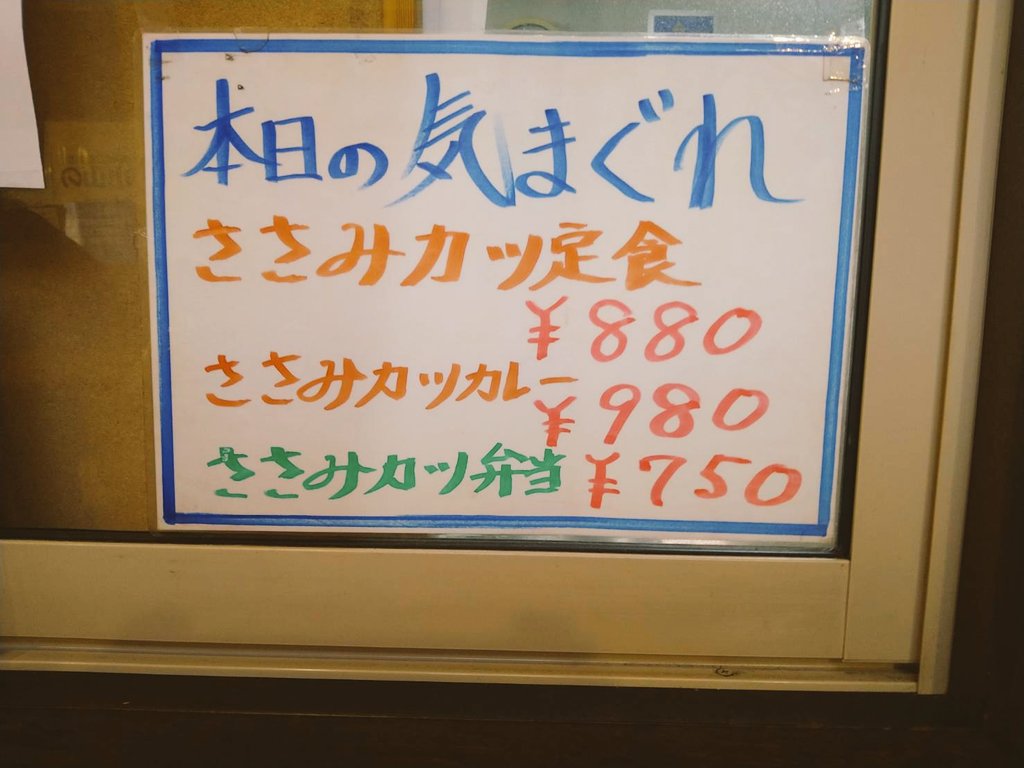 本日の気まぐれ
ささみカツ定食
¥880
ささみカツカレー
¥980
ささみカツ弁当 ¥750